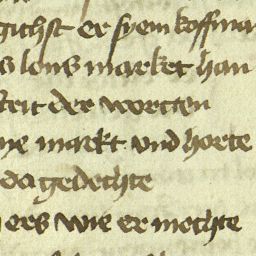 gichst er syem koffma
s lons market han
steit der worten
ne markt vnd horte
da gedechte
ers wie er mochte